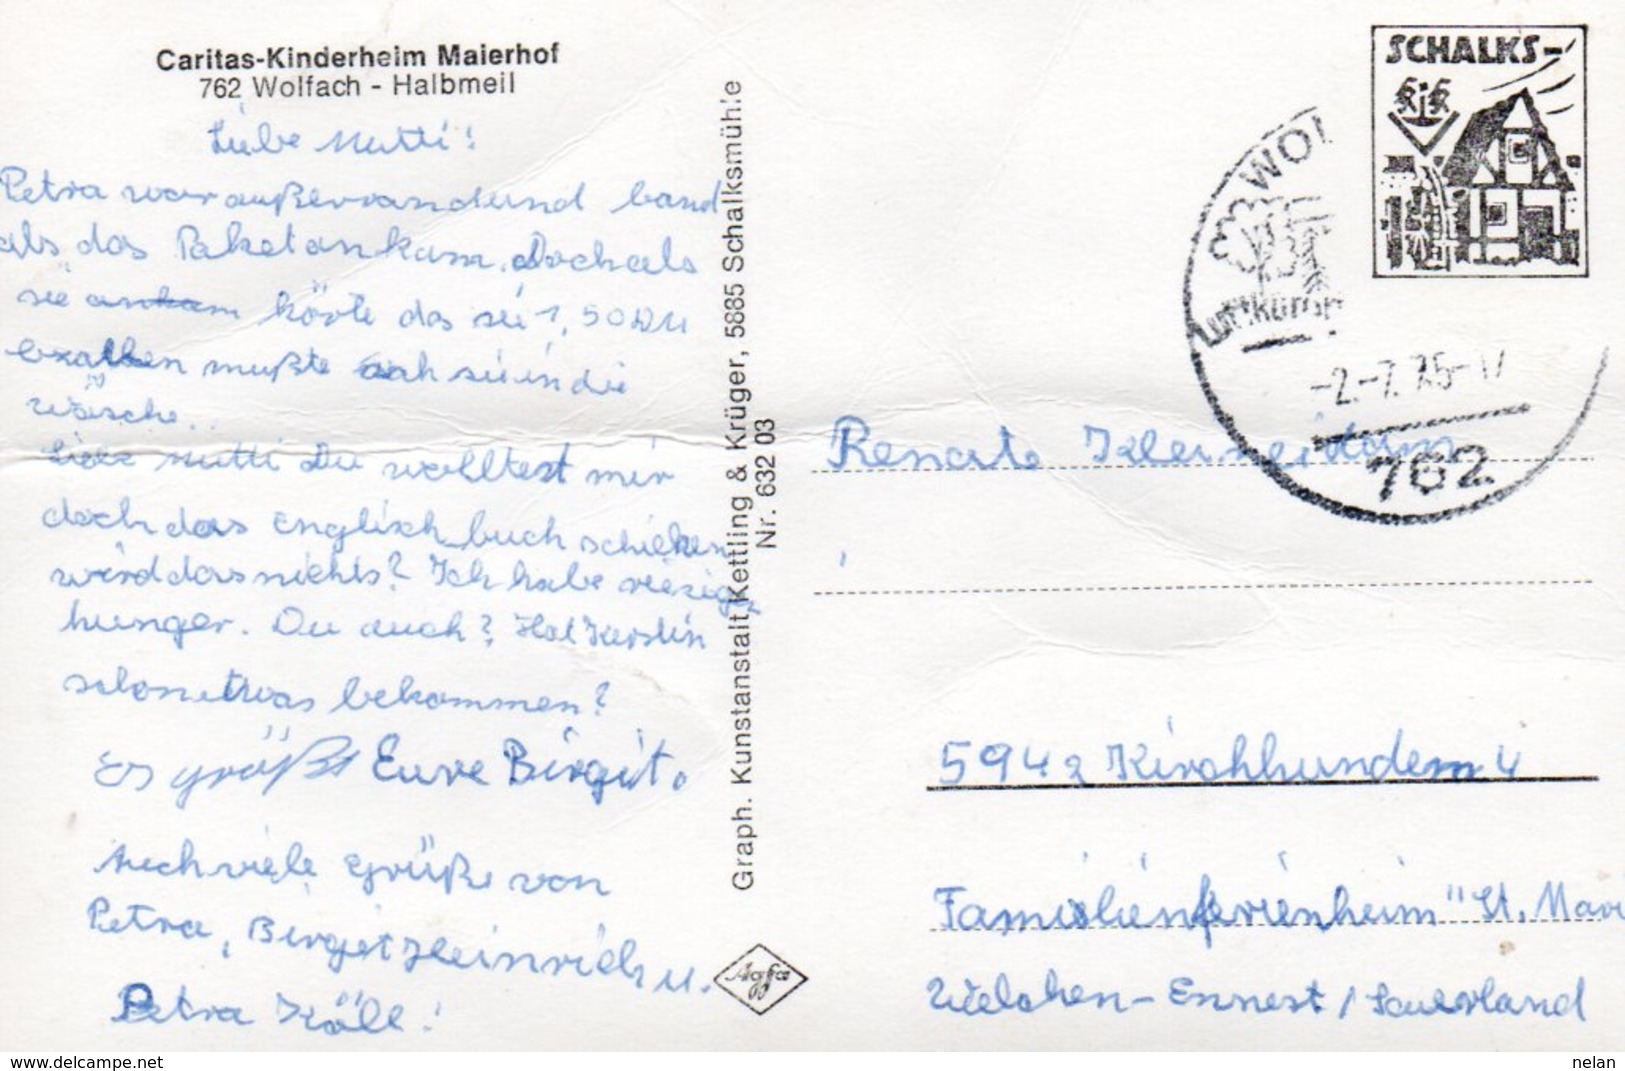 Caritas-Kinderheim Maierhof
762 Wolfach - Halbmeil
Liebe Mutti!
Petra war außerrandund band
als das Paket ankam. Doch als
sie ankam hörte das sie 1,50 DM
bezahlen mußte sah sie in die
wäsche..
Liebe Mutti Du wolltest mir
doch das Englisch buch schicken
wird das nichts? Ich habe riesigen
hunger. Du auch? Hat Kerstin
schon etwas bekommen?
Es grüßt Eure Birgit.
Auch viele Grüße von
Petra, Birgit Heinrich u.
Petra Köll!
Graph. Kunstanstalt Kettling & Krüger, 5885 Schalksmühle
Nr. 632 03
Agfa
SCHALKS-
WOL
Luftkuror
-2.-7.75-17
762
Renate
5942 Kirchhundem 4
Familienferienheim "St. Mari
Welchen-Ennest/Sauerland
nelan
https://www.delcampe.net